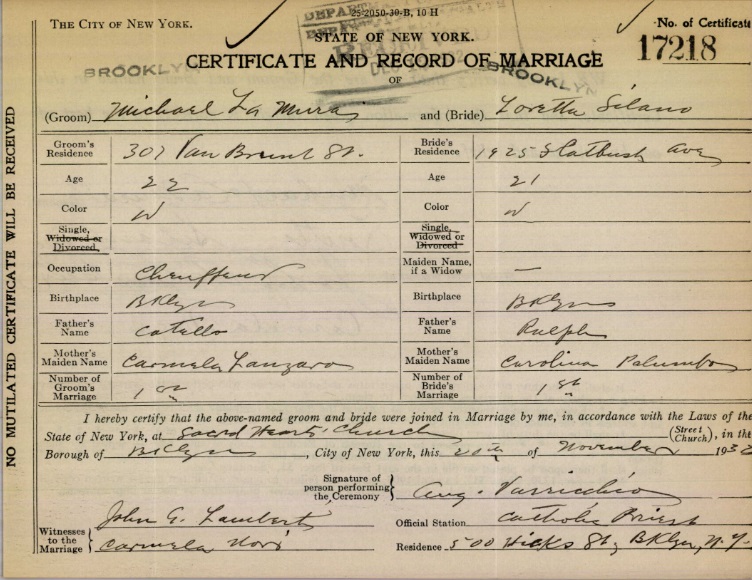 25-2050-30-B, 10 H
THE CITY OF NEW YORK.
STATE OF NEW YORK.
No. of Certificate
17218
CERTIFICATE AND RECORD OF MARRIAGE
OF
BROOKLYN
BROOKLYN
(Groom) Michael La Mura and (Bride) Loretta Silano
Groom's Residence 307 Van Brunt St. Bride's Residence 1925 Flatbush Ave
Age 22 Age 21
Color W Color W
Single, Widowed or Divorced, Single, Widowed or Divorced
Occupation Chauffeur Maiden Name, if a Widow —
Birthplace BKlyn Birthplace BKlyn
Father's Name Catello Father's Name Ralph
Mother's Maiden Name Carmela Lanzaro Mother's Maiden Name Carolina Palumbo
Number of Groom's Marriage 1st Number of Bride's Marriage 1st
I hereby certify that the above-named groom and bride were joined in Marriage by me, in accordance with the Laws of the
State of New York, at Sacred Hearts Church (Street Church), in the
Borough of BKlyn, City of New York, this 20th of November 1932
Signature of person performing the Ceremony Aug. Varricchio
Witnesses to the Marriage John G. Lambert Official Station Catholic Priest
Carmela Residence 500 Hicks St, BKlyn, N.Y.
NO MUTILATED CERTIFICATE WILL BE RECEIVED